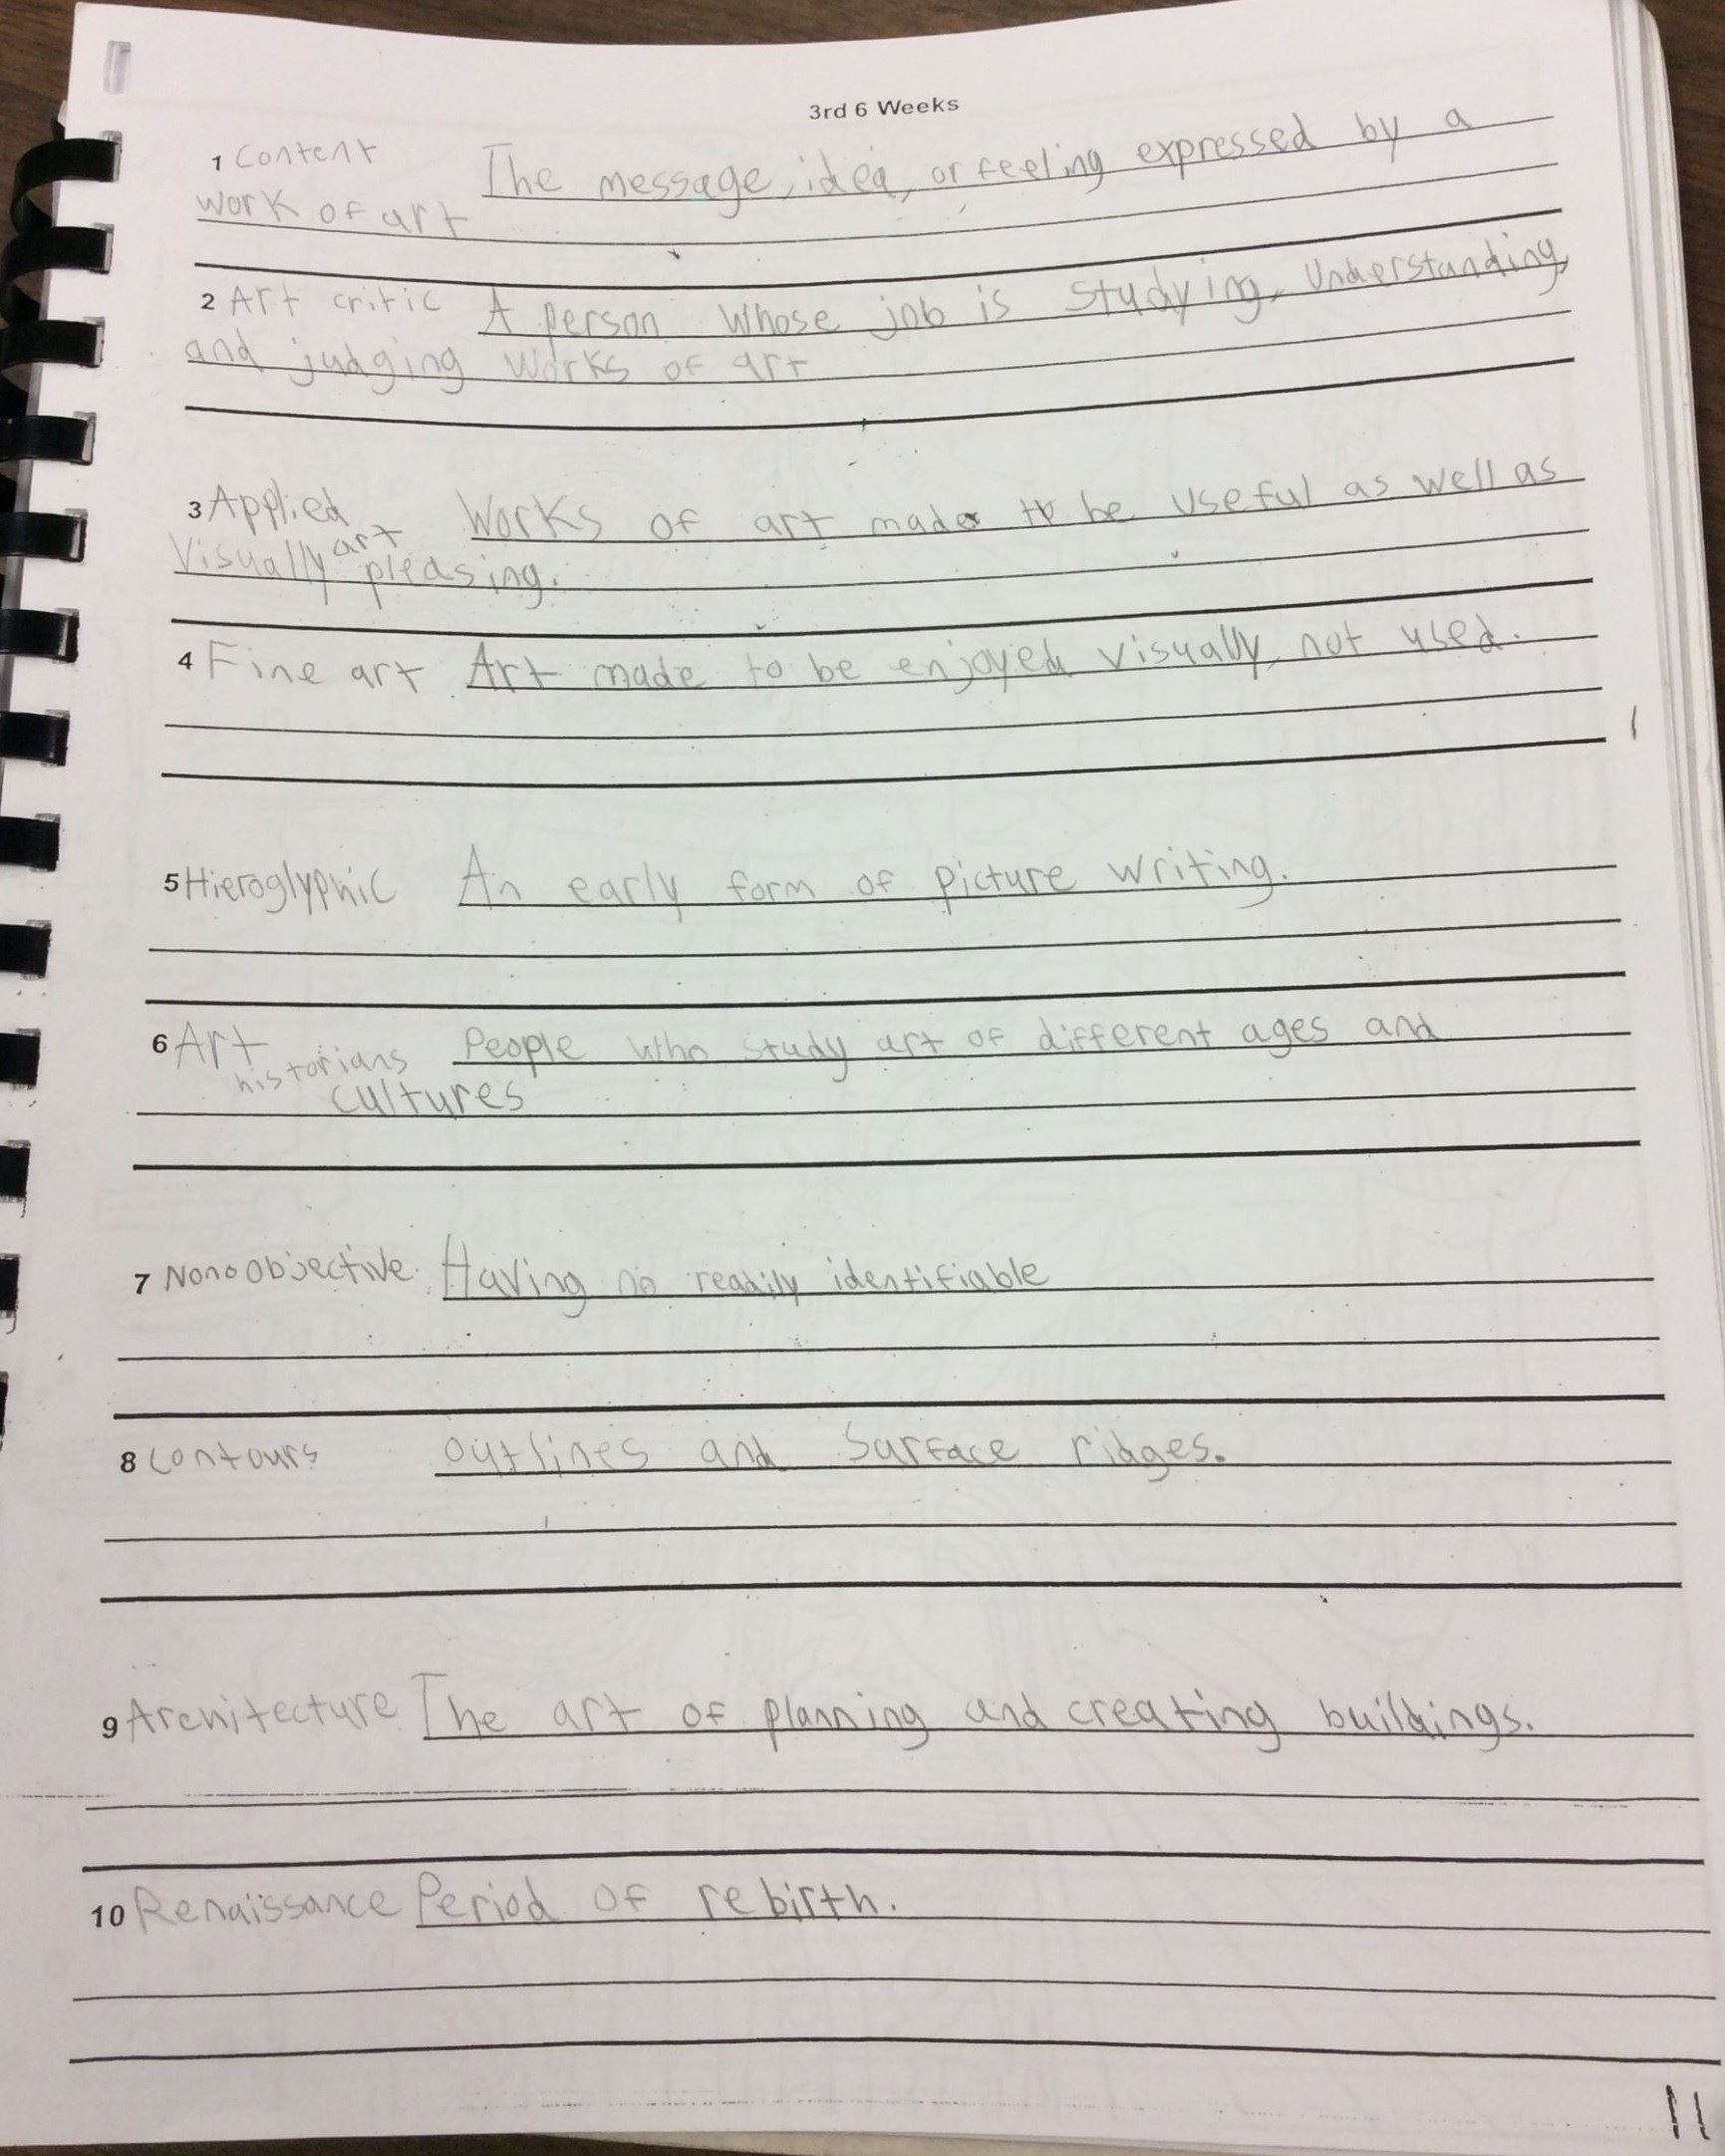 3rd 6 Weeks
1 Content The message, idea, or feeling expressed by a
work of art
2 Art critic A person whose job is studying, understanding,
and judging works of art
3 Applied art Works of art made to be useful as well as
visually pleasing.
4 Fine art Art made to be enjoyed visually, not used.
5 Hieroglyphic An early form of picture writing.
6 Art historians People who study art of different ages and
cultures
7 Nonoobjective Having no readily identifiable
8 Contours outlines and surface ridges.
9 Architecture The art of planning and creating buildings.
10 Renaissance Period of rebirth.
11